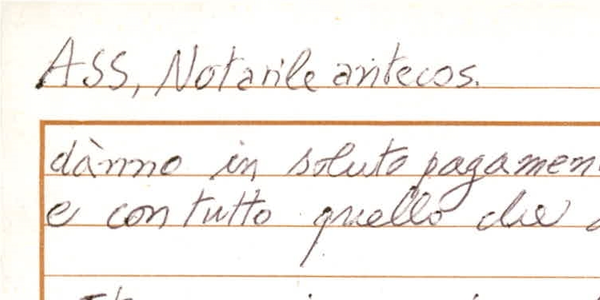 Ass, Notarile antecos.
dànno in soluto pagamen
e con tutto quello che